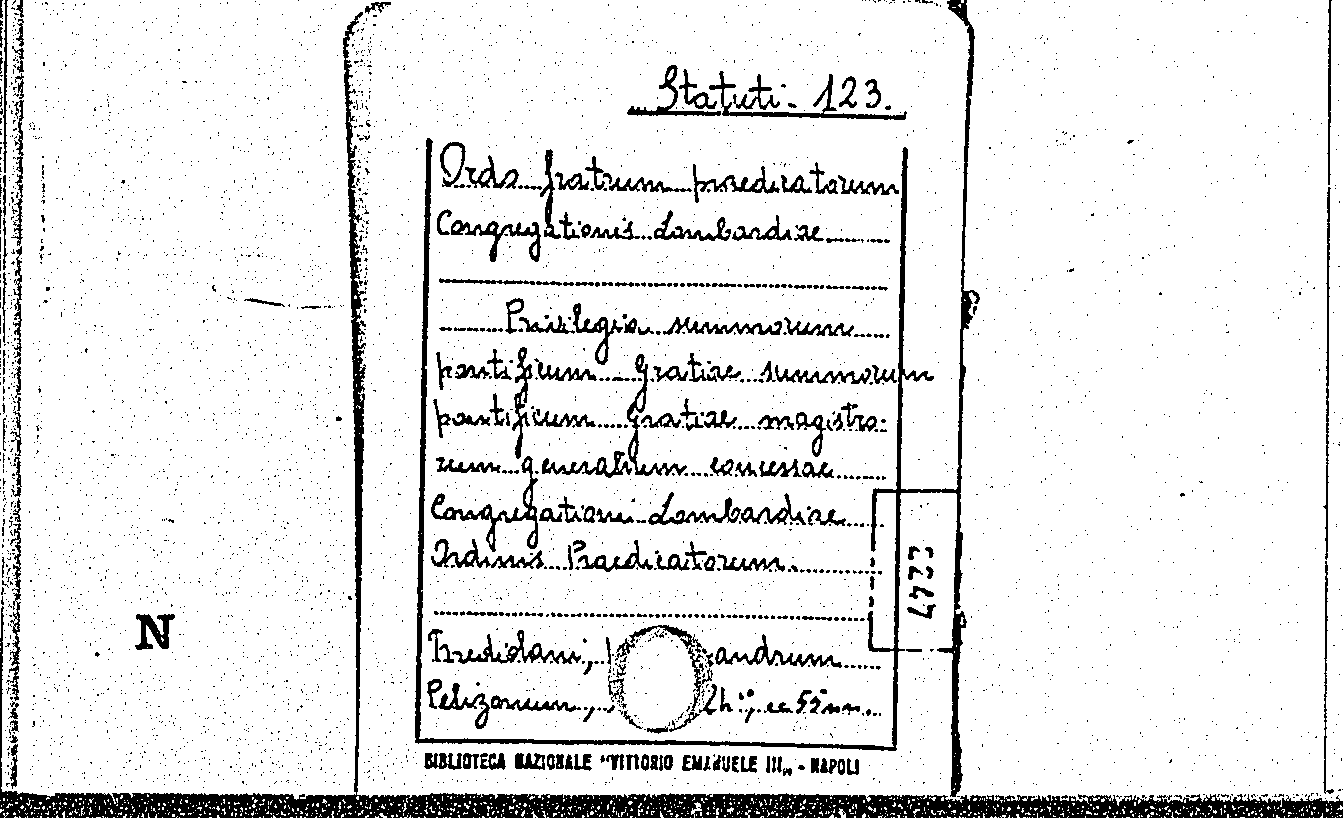 Statuti - 123.
Ordo fratrum praedicatorum
Congregationis Lombardiae
Privilegia summorum
pontificum Gratiae summorum
pontificum Gratiae magistro-
rum generalium concessae
Congregationi Lombardiae
Ordinis Praedicatorum.
andrum
Pelizonum,
BIBLIOTECA NAZIONALE "VITTORIO EMANUELE III„ - NAPOLI
N